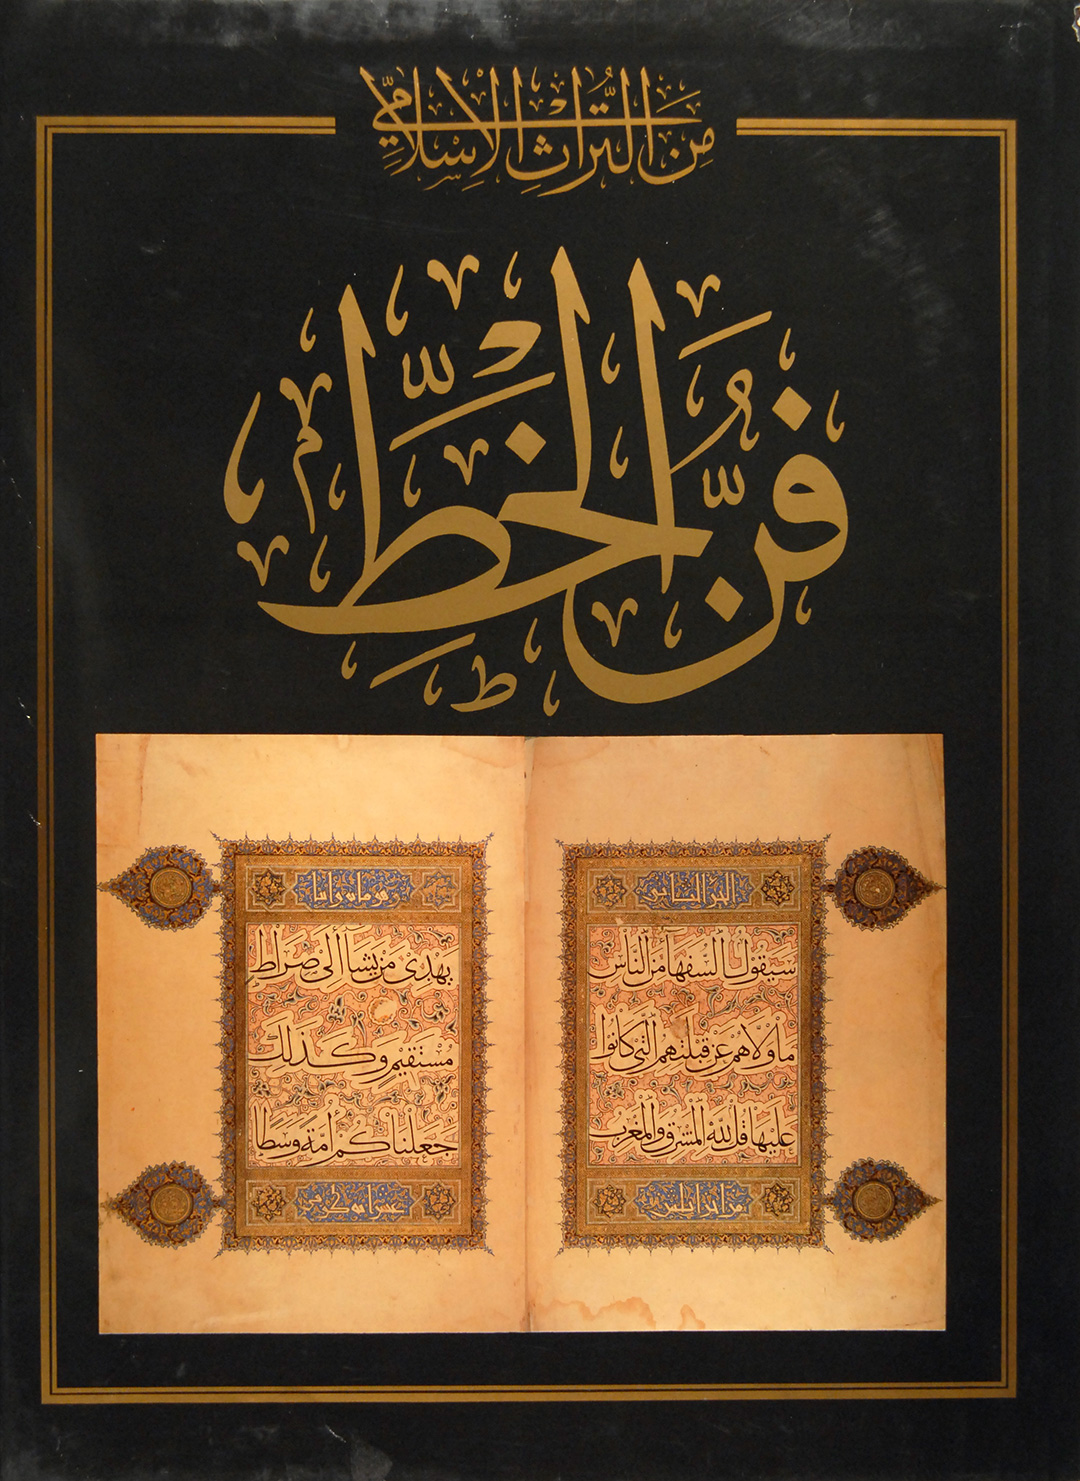 مِنَ التُّرَاثِ الإِسْلَامِيِّ
فَنُّ الْخَطِّ
الجزء الثاني
سَيَقُولُ السُّفَهَآءُ مِنَ النَّاسِ
مَا وَلَّاهُمْ عَنْ قِبْلَتِهِمُ الَّتِي كَانُوا
عَلَيْهَا قُلْ لِلَّهِ الْمَشْرِقُ وَالْمَغْرِبُ
من اجزا ثلثين
يَهْدِي مَنْ يَشَآءُ إِلَى صِرَاطٍ
مُسْتَقِيمٍ وَكَذَلِكَ
جَعَلْنَاكُمْ أُمَّةً وَسَطًا